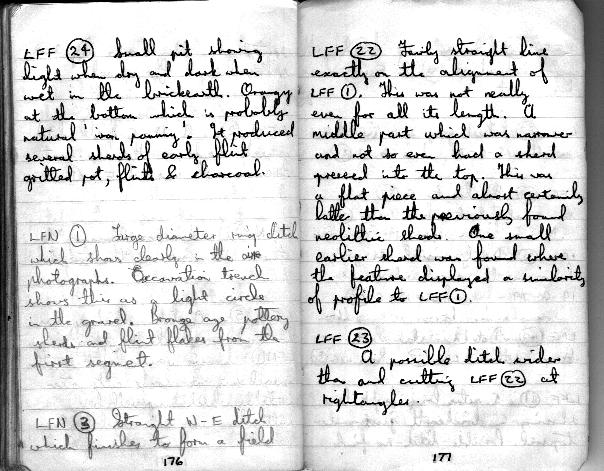 LFF 24 Small pit showing
light when dry and dark when
wet in the brickearth. Orangy
at the bottom which is probably
natural 'iron panning'. It produced
several sherds of early flint
gritted pot, flints & charcoal.
LFN 1 Large diameter ring ditch
which shows clearly in the air
photographs. Excavation trench
shows this as a light circle
in the gravel. Bronze age pottery
sherds and flint flakes from the
first segment.
LFN 3 Straight N-E ditch
which finishes to form a field
176
LFF 22 Fairly straight line
exactly on the alignment of
LFF 1. This was not really
even for all its length. A
middle part which was narrower
and not so even had a sherd
pressed into the top. This was
a flat piece and almost certainly
later than the previously found
neolithic sherds. One small
earlier sherd was found where
the feature displayed a similarity
of profile to LFF 1.
LFF 23
A possible ditch wider
than and cutting LFF 22 at
rightangles.
177